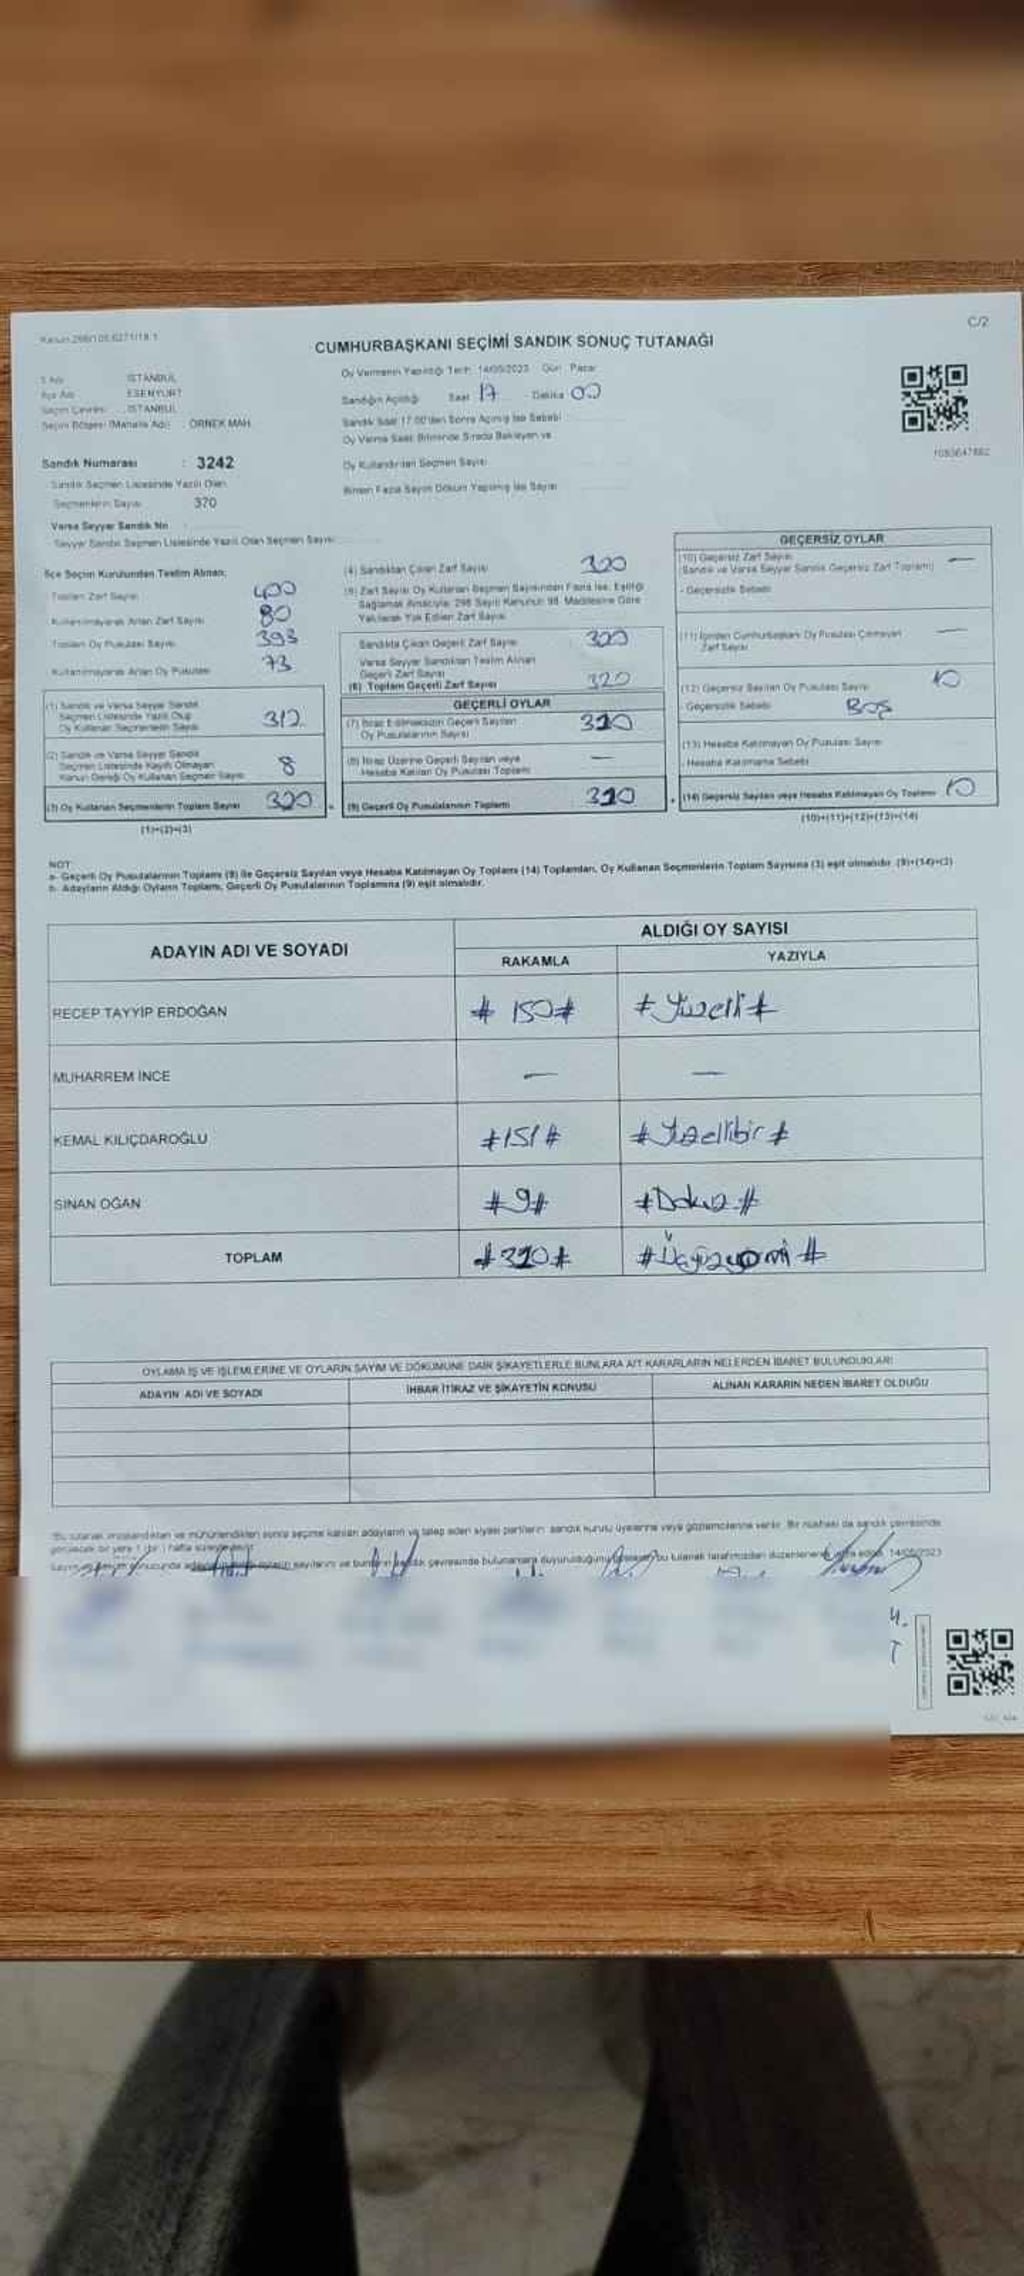 C/2
CUMHURBAŞKANI SEÇİMİ SANDIK SONUÇ TUTANAĞI
İSTANBUL
ESENYURT
İSTANBUL
ÖRNEK MAH.
Oy Vermenin Yapıldığı Tarih 14/05/2023 Gün: Pazar
Sandığın Açıldığı Saat 17 Dakika 00
Sandık Saat 17.00'den Sonra Açılmış İse Sebebi
Oy Verme Saati Bitiminde Sırada Bekleyen ve
Oy Kullandırılan Seçmen Sayısı
Birden Fazla Sayım Döküm Yapılmış İse Sayısı
Sandık Numarası : 3242
Sandık Seçmen Listesinde Yazılı Olan
Seçmenlerin Sayısı 370
Varsa Seyyar Sandık No
Seyyar Sandık Seçmen Listesinde Yazılı Olan Seçmen Sayısı
İlçe Seçim Kurulundan Teslim Alınan;
Toplam Zarf Sayısı 400
Kullanılmayarak Artan Zarf Sayısı 80
Toplam Oy Pusulası Sayısı 393
Kullanılmayarak Artan Oy Pusulası 73
(1) Sandık ve Varsa Seyyar Sandık
Seçmen Listesinde Yazılı Olup
Oy Kullanan Seçmenlerin Sayısı 312
(2) Sandık ve Varsa Seyyar Sandık
Seçmen Listesinde Kayıtlı Olmayan
Kanun Gereği Oy Kullanan Seçmen Sayısı 8
(3) Oy Kullanan Seçmenlerin Toplam Sayısı 320
(1)+(2)=(3)
(4) Sandıktan Çıkan Zarf Sayısı 320
(5) Zarf Sayısı Oy Kullanan Seçmen Sayısından Fazla İse, Eşitliği
Sağlamak Amacıyla; 298 Sayılı Kanunun 98. Maddesine Göre
Yakılarak Yok Edilen Zarf Sayısı
Sandıkta Çıkan Geçerli Zarf Sayısı 320
Varsa Seyyar Sandıktan Teslim Alınan
Geçerli Zarf Sayısı
(6) Toplam Geçerli Zarf Sayısı 320
GEÇERLİ OYLAR
(7) İtiraz Edilmeksizin Geçerli Sayılan
Oy Pusulalarının Sayısı 310
(8) İtiraz Üzerine Geçerli Sayılan veya
Hesaba Katılan Oy Pusulası Toplamı —
(9) Geçerli Oy Pusulalarının Toplamı 310
GEÇERSİZ OYLAR
(10) Geçersiz Zarf Sayısı —
(Sandık ve Varsa Seyyar Sandık Geçersiz Zarf Toplamı)
- Geçersizlik Sebebi
(11) İçinden Cumhurbaşkanı Oy Pusulası Çıkmayan —
Zarf Sayısı
(12) Geçersiz Sayılan Oy Pusulası Sayısı 10
Geçersizlik Sebebi Boş
(13) Hesaba Katılmayan Oy Pusulası Sayısı
- Hesaba Katılmama Sebebi
(14) Geçersiz Sayılan veya Hesaba Katılmayan Oy Toplamı 10
(10)+(11)+(12)+(13)=(14)
NOT:
a- Geçerli Oy Pusulalarının Toplamı (9) ile Geçersiz Sayılan veya Hesaba Katılmayan Oy Toplamı (14) Toplamları, Oy Kullanan Seçmenlerin Toplam Sayısına (3) eşit olmalıdır. (9)+(14)=(3)
b- Adayların Aldığı Oyların Toplamı, Geçerli Oy Pusulalarının Toplamına (9) eşit olmalıdır.
ADAYIN ADI VE SOYADI
ALDIĞI OY SAYISI
RAKAMLA YAZIYLA
RECEP TAYYİP ERDOĞAN # 150 # # Yüzelli #
MUHARREM İNCE — —
KEMAL KILIÇDAROĞLU # 151 # # Yüzellibir #
SİNAN OĞAN # 9 # # Dokuz #
TOPLAM # 310 #
OYLAMA İŞ VE İŞLEMLERİNE VE OYLARIN SAYIM VE DÖKÜMÜNE DAİR ŞİKAYETLERLE BUNLARA AİT KARARLARIN NELERDEN İBARET BULUNDUKLARI
ADAYIN ADI VE SOYADI İHBAR İTİRAZ VE ŞİKAYETİN KONUSU ALINAN KARARIN NEDEN İBARET OLDUĞU